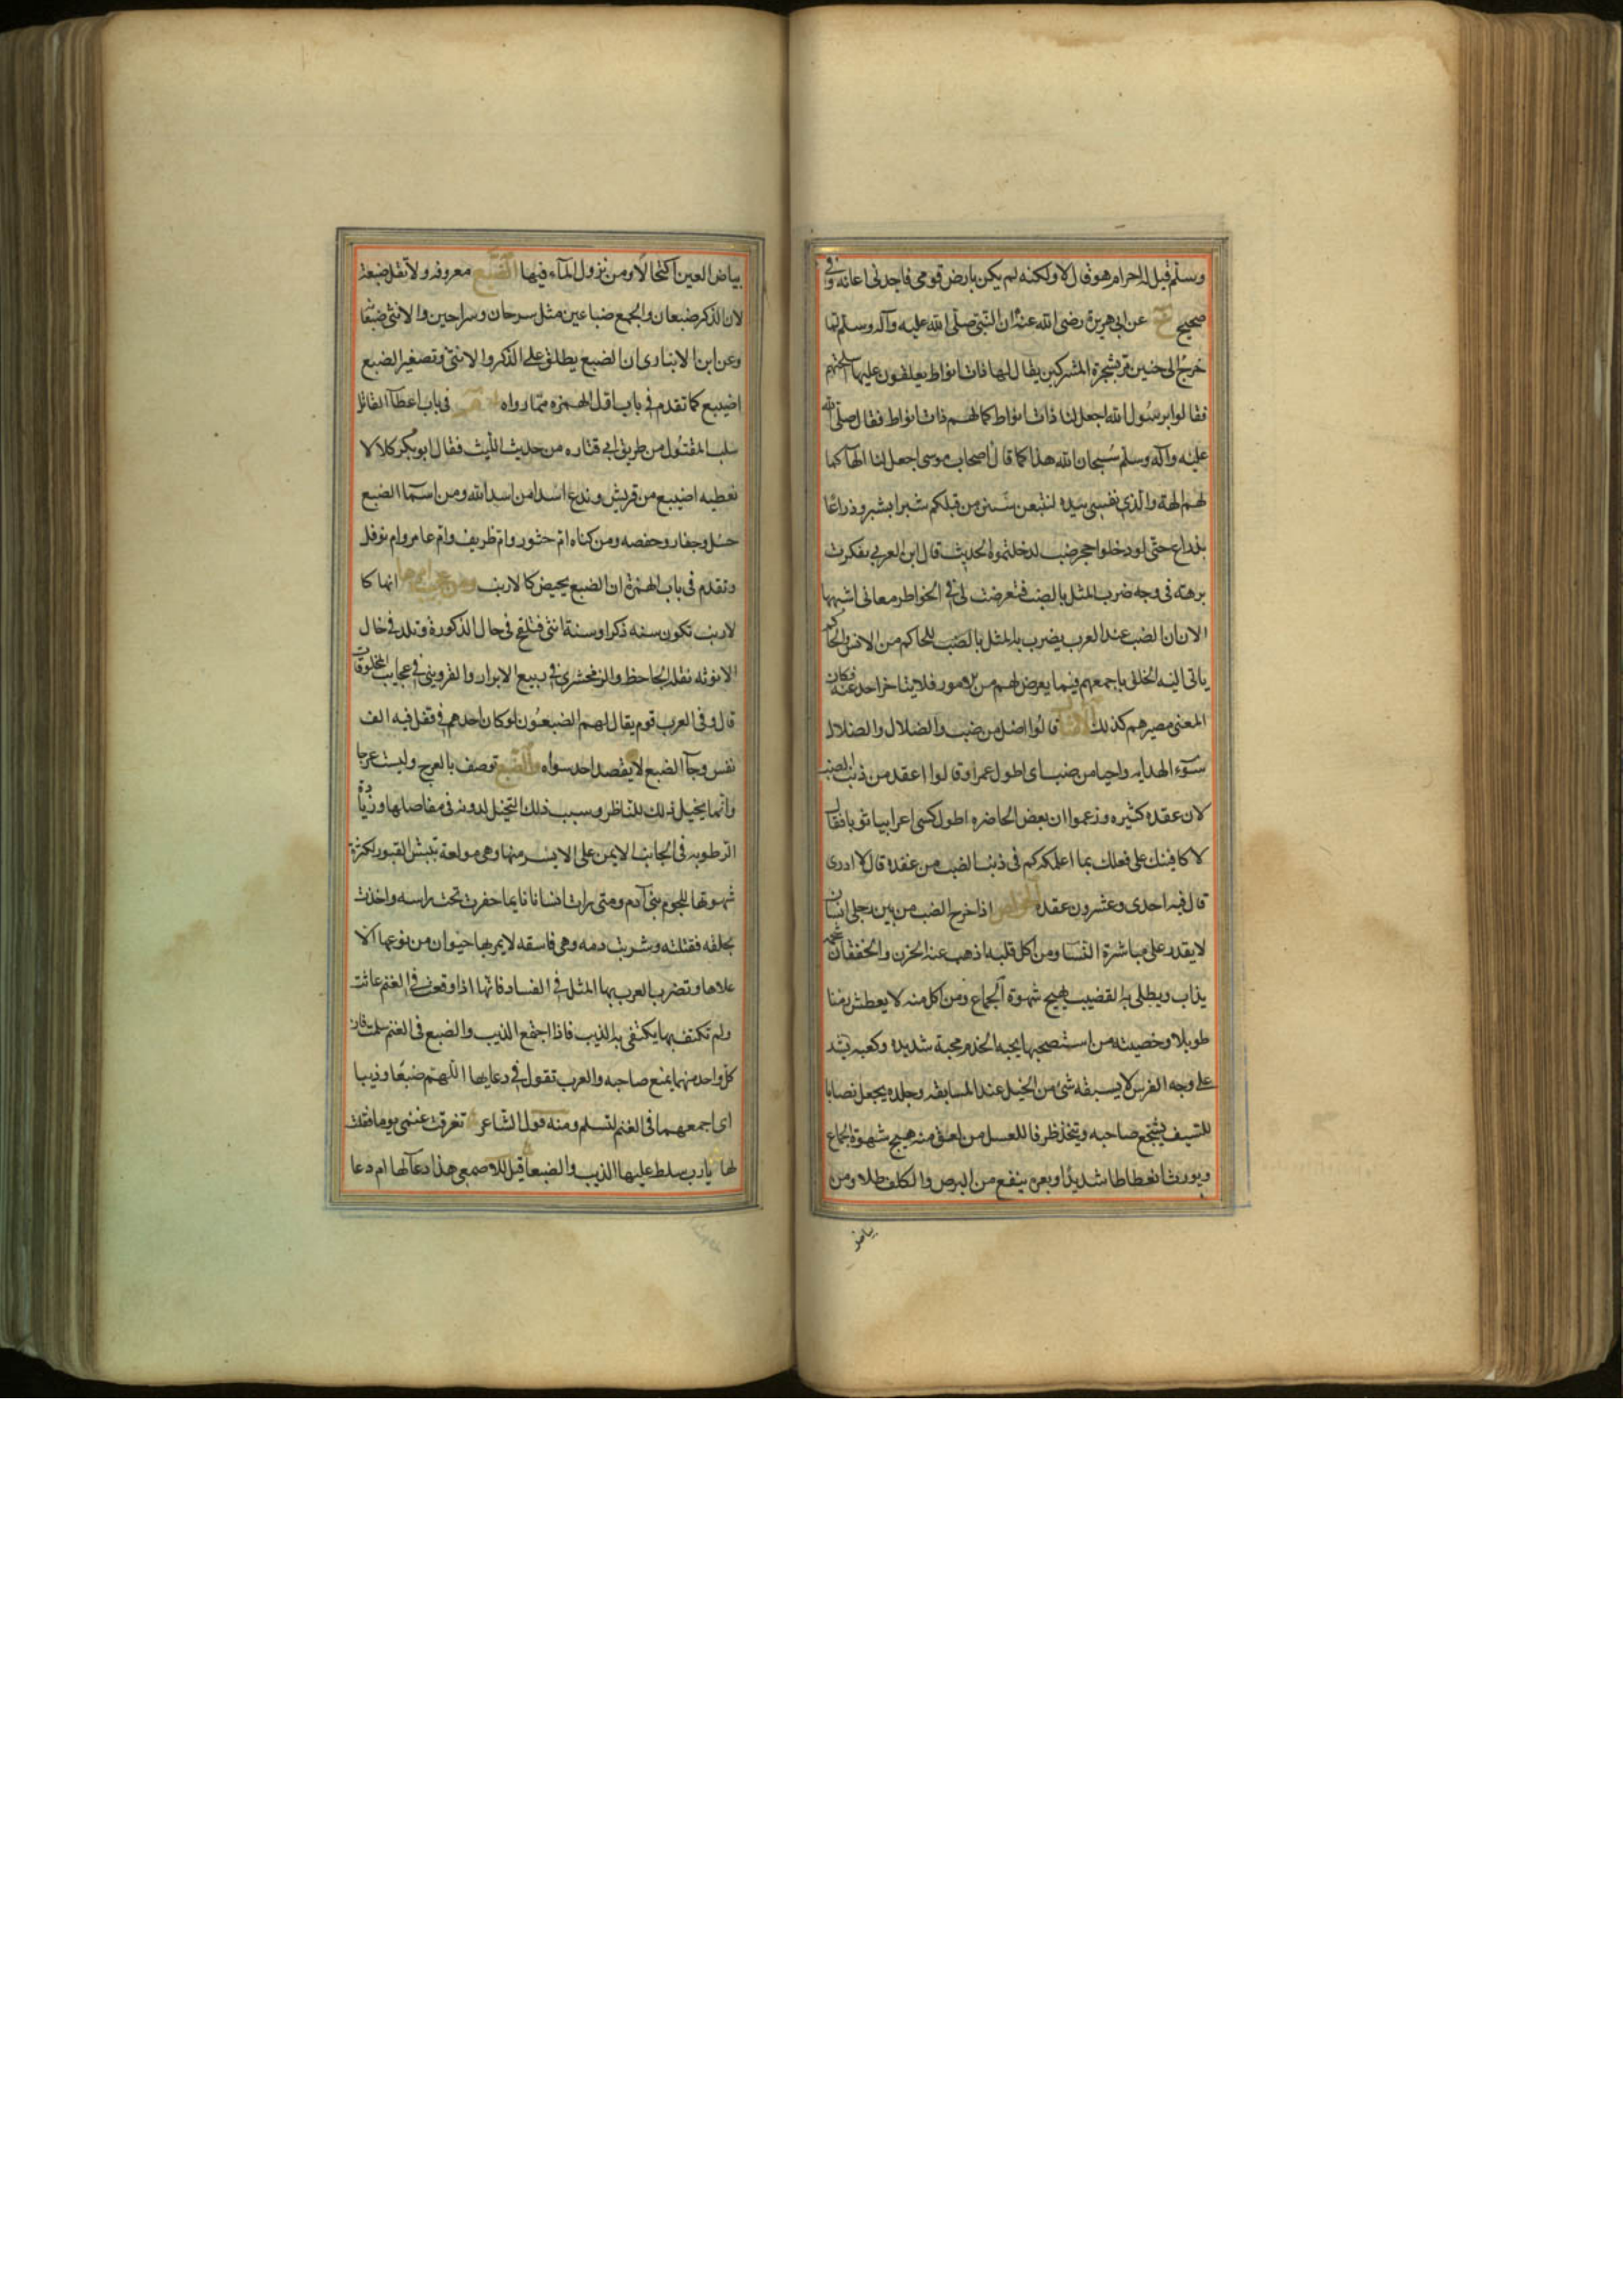 وسلم قيل له احرام هو قال لا ولكنه لم يكن بارض قومى فاجدنى اعافه وفى
صحيح عن ابى هريرة رضى الله عنه ان النبى صلى الله عليه وآله وسلم لما
خرج الى حنين مر بشجرة المشركين يقال لها ذات انواط يعلقون عليها اسلحتهم
فقالوا يرسول الله اجعل لنا ذات انواط كما لهم ذات انواط فقال صلى الله
عليه وآله وسلم سبحان الله هذا كما قال اصحاب موسى اجعل لنا الها كما
لهم الهة والذى نفسى بيده لتتبعن سنن من قبلكم شبرا بشبر وذراعا
بذراع حتى لو دخلوا جحر ضب لدخلتموه الحديث قال ابن العربى تفكرت
برهة فى وجه ضرب المثل بالضب فتعرضت لى فى الخواطر معانى اشبهها
الان ان الضب عند العرب يضرب به المثل بالضب للحاكم من الانس والحاكم
ياتى اليه الخلق باجمعهم فيما يعرض لهم من الامور فلا يتاخر احد عنه فكان
المعنى مصيرهم كذلك قالوا اضل من ضب والضلال والضلال
سوء الهدايه واحيا من ضب اى اطول عمرا وقالوا اعقد من ذنب الضب
لان عقده كثيره وزعموا ان بعض الحاضره اطول كسى اعرابيا ثوبا فقال
لا كافينك على فعلك بما اعلمكه كم فى ذنب الضب من عقده قال لا ادرى
قال فيه احدى وعشرون عقده الخواص اذا خرج الضب من بين رجلى انسان
لا يقدر على مباشرة النسا ومن اكل قلبه اذهب عنه الحزن والخفقان شحمه
يذاب ويطلى به القضيب يهيج شهوة الجماع ومن اكل منه لا يعطش زمنا
طويلا وخصيته من استصحبها يحبه الخدم محبة شديده وكعبه يشد
على وجه الفرس لا يسبقه شئ من الخيل عند المسابقه وجلده يجعل نصابا
للسيف يشجع صاحبه ويتخذ ظرفا للعسل من لعق منه هيج شهوة الجماع
ويورث انعظاظا شديدا وبعره ينفع من البرص والكلف طلا ومن
بياض
بياض العين اكتحالا ومن نزول المآء فيها الضبع معروفه ولا تقل ضبعة
لان الذكر ضبعان والجمع ضباعين مثل سرحان وسراحين والانثى ضبعانة
وعن ابن الانبارى ان الضبع يطلق على الذكر والانثى وتصغير الضبع
اضيبع كما تقدم فى باب اول الهمزه مما رواه فى باب اعطآ القاتل
سلب المقتول من طريق ابى قتاده من حديث الليث فقال ابو بكر كلا لا
نعطيه اضيبع من قريش وندع اسدا من اسد الله ومن اسما الضبع
حيل وجعار وحفصه ومن كناه ام خنور وام طريف وام عامر وام نوفل
وتقدم فى باب الهمزة ان الضبع يحيض كالارنب ومن عجيب امرها انها كا
لارنب تكون سنه ذكرا وسنة انثى فتلقح فى حال الذكورة وتلد فى حال
الانوثه نقله الجاحظ والزمخشرى فى ربيع الابرار والقزوينى فى عجايب المخلوقات
قال وفى العرب قوم يقال لهم الضبعون لو كان احدهم فى قفل فيه الف
نفس وجآ الضبع لا يقصد احد سواه والضبع توصف بالعرج وليست عرجا
وانما يخيل ذلك للناظر وسبب ذلك التخيل لدونه فى مفاصلها وزيادة
الرطوبه فى الجانب الايمن على الايسر منها وهى مولعة بنبش القبور لكثرة
شهوتها للحوم بنى آدم ومتى رات انسانا نايما حفرت تحت راسه واخذت
بحلقه فقتلته وشربت دمه وهى فاسقه لا يمر بها حيوان من نوعها الا
علاها وتضرب العرب بها المثل فى الفساد فانها اذا وقعت فى الغنم عاثت
ولم تكتف بما يكتفى به الذيب فاذا اجتمع الذيب والضبع فى الغنم سلمت فان
كل واحد منهما يمنع صاحبه والعرب تقول فى دعايها اللهم ضبعا وذيبا
اى اجمعهما فى الغنم لتسلم ومنه قول الشاعر تفرقت غنمى يوما فقلت
لها يا رب سلط عليها الذيب والضبعا قيل للاصمعى هذا دعآ لها ام دعا